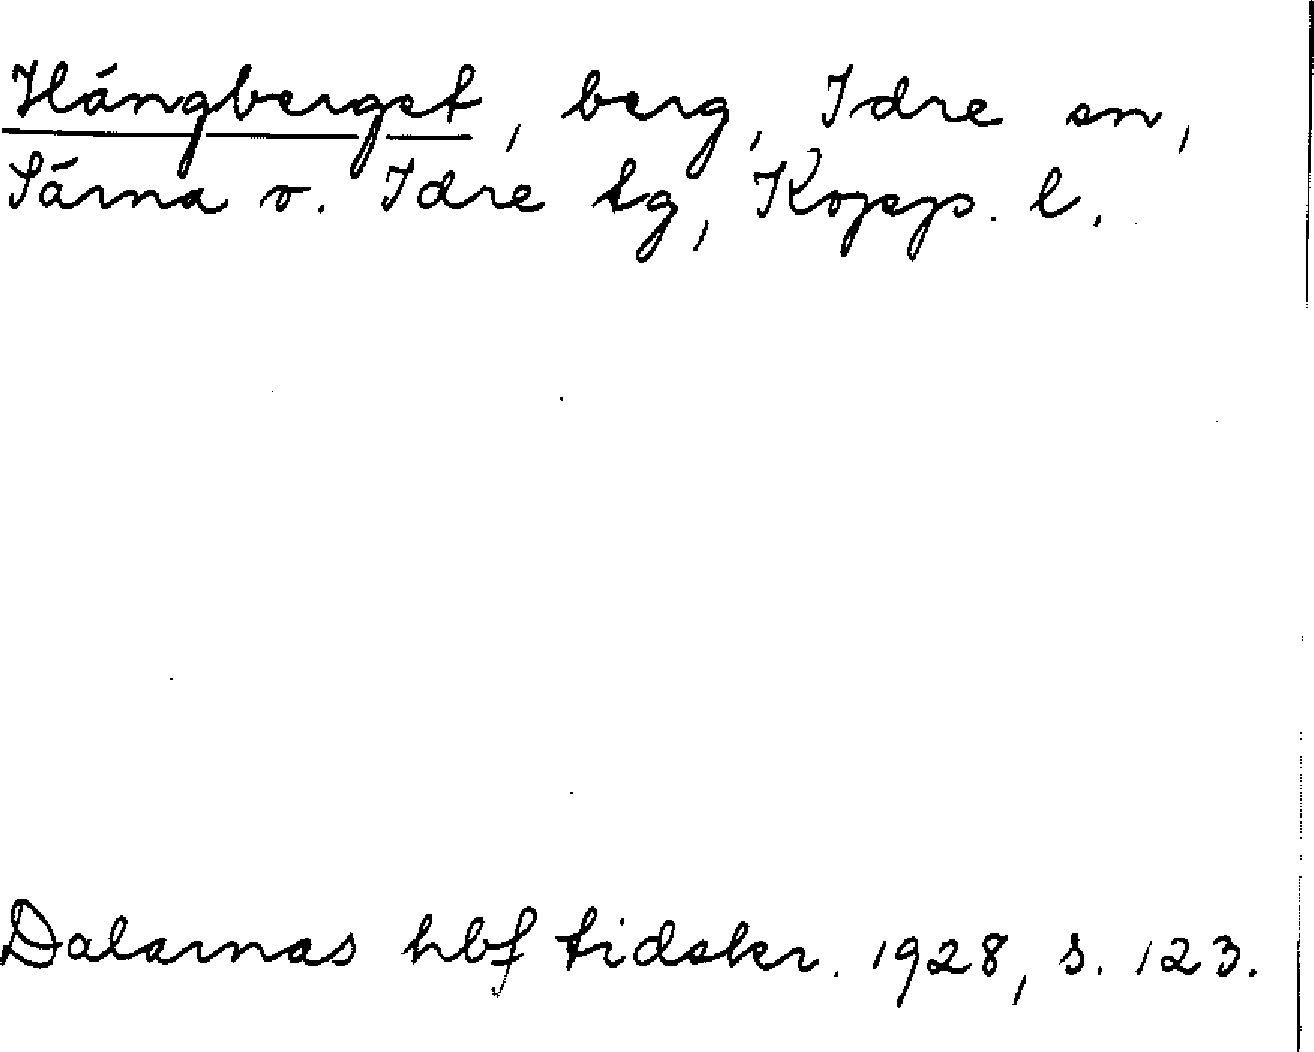 Hångberget, berg, Idre sn,
Särna o. Idre tg, Kopp. l.
Dalarnas hbf tidskr. 1928, s. 123.